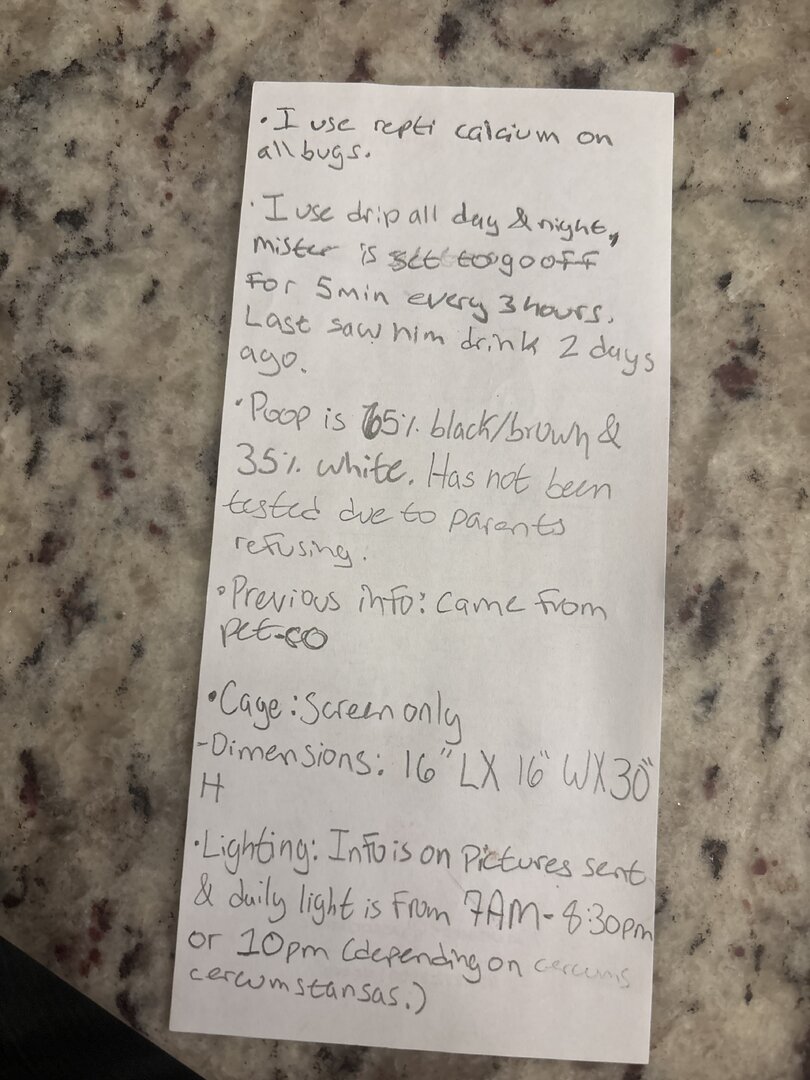 • I use repti calcium on
all bugs.
• I use drip all day & night,
mister is set to go off
for 5 min every 3 hours.
Last saw him drink 2 days
ago.
• Poop is 65% black/brown &
35% white. Has not been
tested due to parents
refusing.
• Previous info: came from
pet-co
• Cage: Screen only
- Dimensions: 16" L X 16" W X 30"
H
• Lighting: Info is on pictures sent
& daily light is from 7AM - 8:30pm
or 10pm (depending on cercums
cercumstansas.)